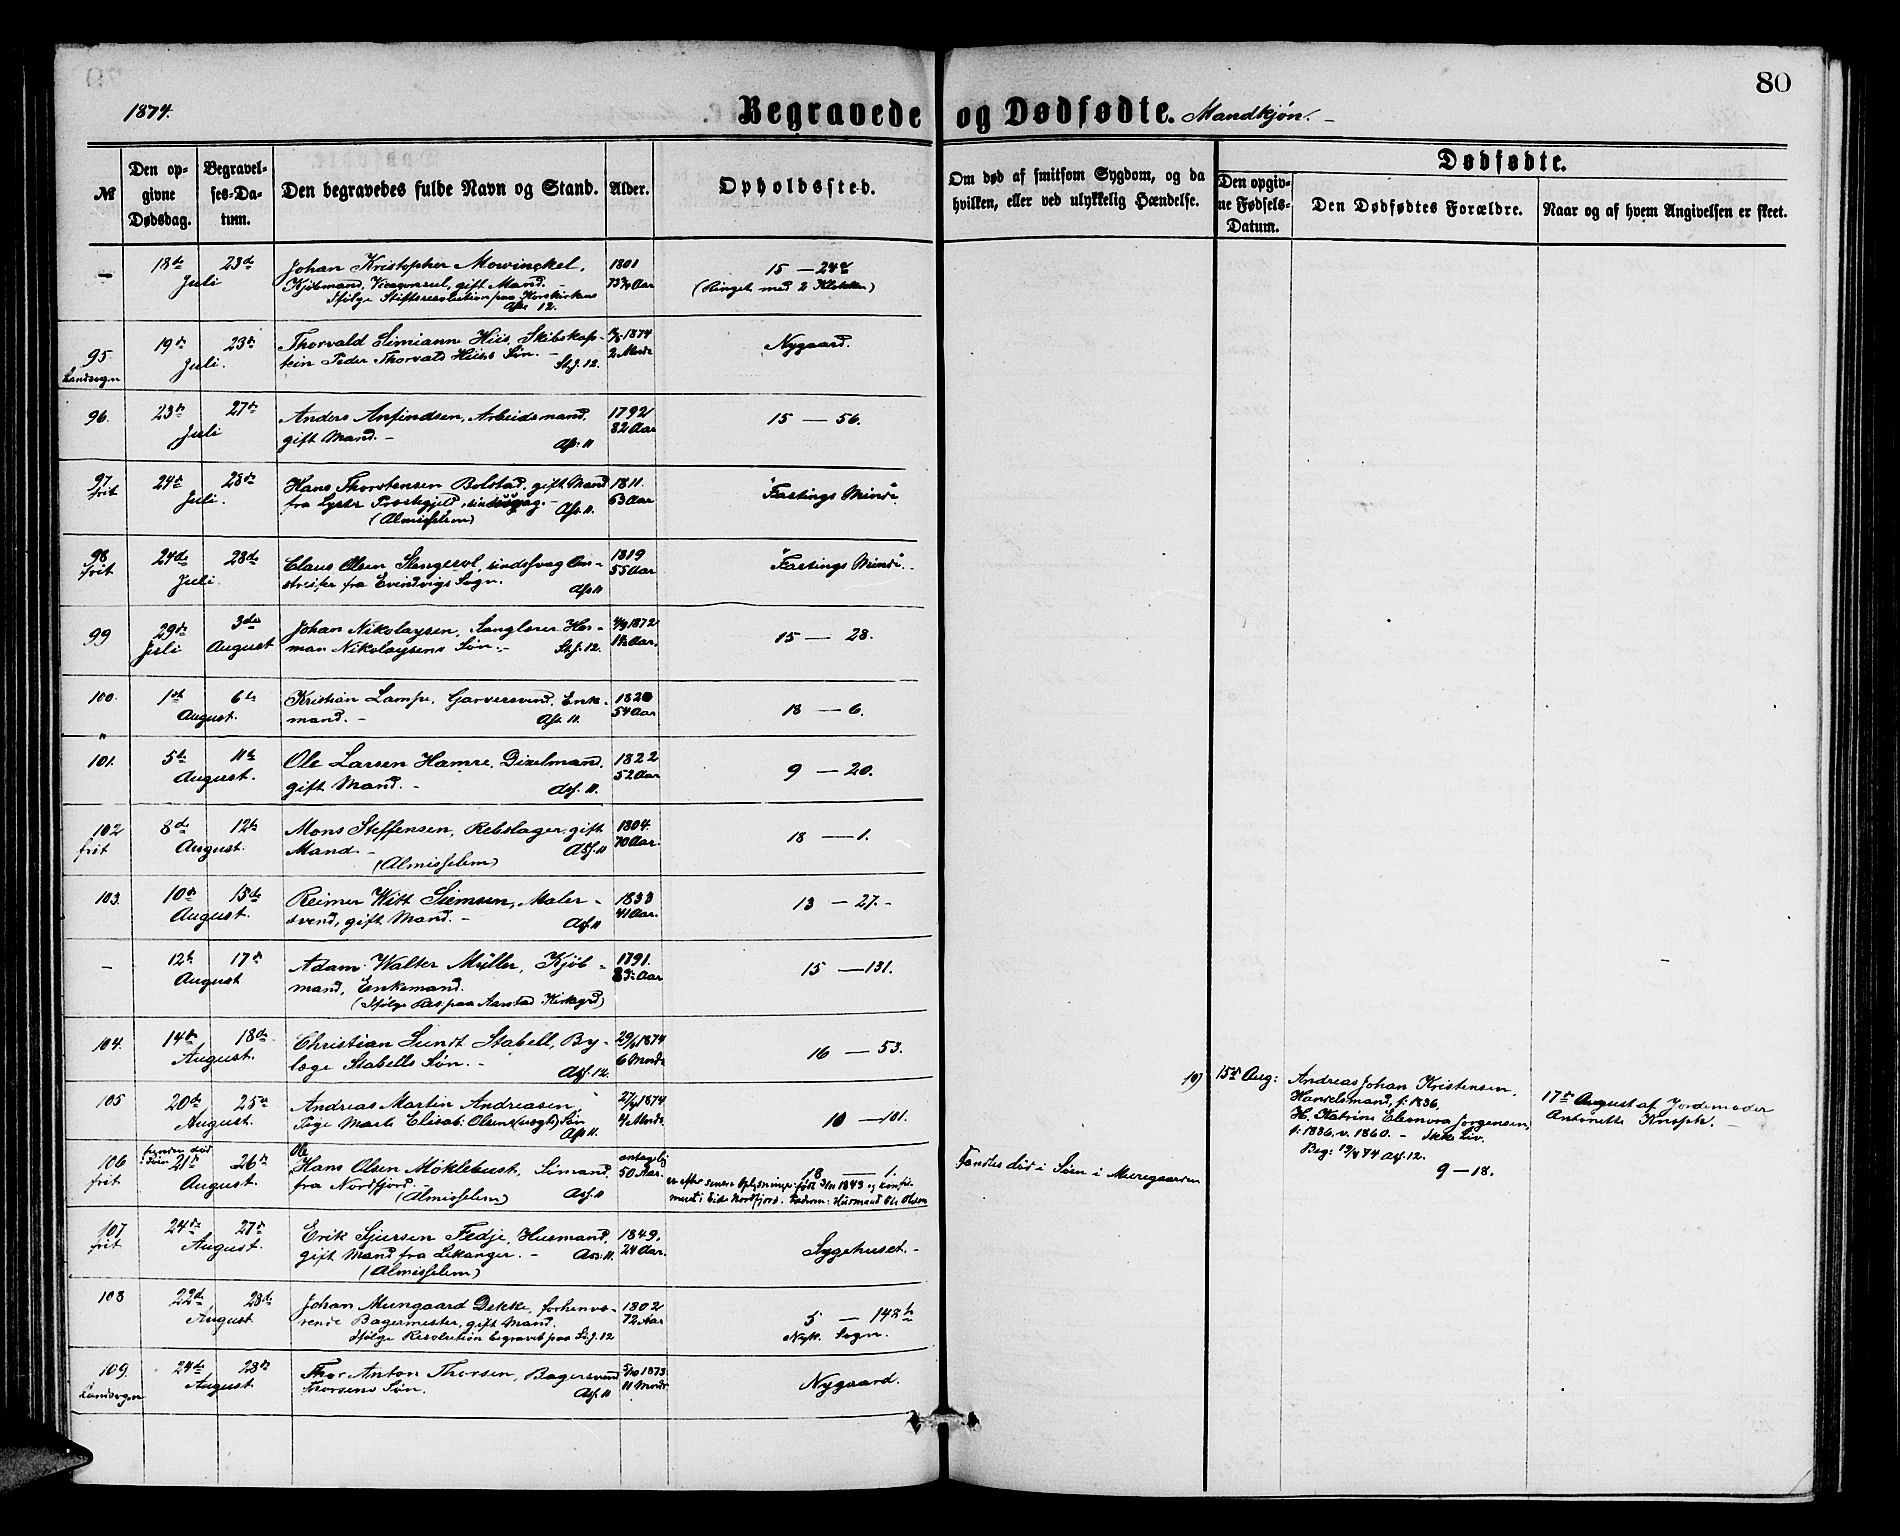 80
1874.
Begravede og Dødfødte. Mandkjøn. -
№
Den opgivne Dødsdag.
Begravelses-Datum.
Den begravedes fulde Navn og Stand.
Alder.
Opholdssted.
Om død af smitsom Sygdom, og da hvilken, eller ved ulykkelig Hændelse.
Dødfødte.
Den opgivne Fødsels-Datum.
Den Dødfødtes Forældre.
Naar og af hvem Angivelsen er skeet.
- 18de Juli 23de Johan Kristopher Mowinckel, 1801
Kjøbmand, Viceconsul, gift Mand. - 73 Aar 15 - 24
Ifølge Stiftsresolution paa Korskirkens (Ringet med 2 Klokker)
Afs. 12.
95 Landsogn 19de Juli 23de Thorvald Simiann Hiis, Skibskap- 1874
tein Peder Thorvald Hiis's Søn. - 2 Mndr Nygaard.
96. 23de Juli 27de Anders Anfindsen, Arbeidsmand, 1792
gift Mand. - Afs. 11 82 Aar 15 - 56.
97 frit 24de Juli 28de Hans Thorstensen Bolstad, gift Mand 1811.
fra Lyster Præstegjeld, sindssvag. - Afs. 11. 63 Aar "Fastings Minde"
(Almisselem)
98 frit 24de Juli 28de Claus Olsen Slengesol, sindssvag Om- 1819
streifer fra Evindvigs Sogn. Afs. 11 55 Aar "Fastings Minde". -
99 29de Juli 3die August Johan Nikolaysen, Sanglærer Her- 1872
man Nikolaysens Søn. - 15 - 28.
100. 1ste August 6te Kristian Lampe, Garversvend, Enke- 1820
mand. - Afs. 11. 54 Aar 18 - 6.
101. 5te August 11te Ole Larsen Hamre, Dixelmand, 1822
gift Mand. - Afs. 11. 52 Aar 9 - 20.
102 frit 8de August 12te Mons Steffensen, Rebslager, gift 1804.
Mand. - Afs. 11 70 Aar. 18 - 1.
(Almisselem)
103. 10de August 15de Reimer Witt Siemsen, Maler- 1833
svend, gift Mand. - Afs. 11 41 Aar. 13 - 27. -
- 12te August 17de Adam Walter Müller, Kjøb- 1791.
mand, Enkemand. 83 Aar 15 - 131.
(Ifølge Res. paa Aarstad Kirkegrd)
104. 14de August 18de Christian Lundt Stabell, By- 29/1 1874
læge Stabells Søn. - Afs. 12. 6 Mndr 16 - 53.
105 20de August 25de Andreas Martin Andreasen, 27/4 1874
Pige Marte Elisab: Olsens (uægt) Søn Afs. 11. 4 Mndr. 10 - 101.
106 frit funden død i Søen 21de August 26de Ole
Hans Olsen Møklebust, Sømand antagelig
fra Nordfjord. - Afs. 11 50 Aar. 18 - 1.
(Almisselem)
er efter senere Oplysninger født 3/11 1843 og konfir-
meret i Eids Nordfjord. Fadren: Husmand Ole Olsen
Fandtes død i Søen i Muregaarden
107 frit 24de August 27de Erik Sjursen Fedje, Husmand, 1849,
gift Mand fra Lekanger. - Ass. 11. 24 Aar. Sygehuset. -
(Almisselem)
108 22de August 28de Johan Meengaard Dekke, forhenvæ- 1802
rende Bagermester, gift Mand. 72 Aar 5 - 148
Ifølge Resolution begravet paa 12 Nyk. Sogn.
109. Landsogn 24de August 28de Thor Anton Thorsen, Bagersvend 5/10 1873.
Thorsens Søn. Afs. 11 11 Mndr Nygaard.
10) 15de Aug: Andreas Johan Kristensen,
Handelsmand, f: 1836,
H. Katrine Eleonora Jørgensen,
f: 1836, v. 1860. - Ikke Liv.
Beg: 19/8 74 Afs. 12.
9 - 18.
17de August af Jordemoder
Antonette Knoph. -